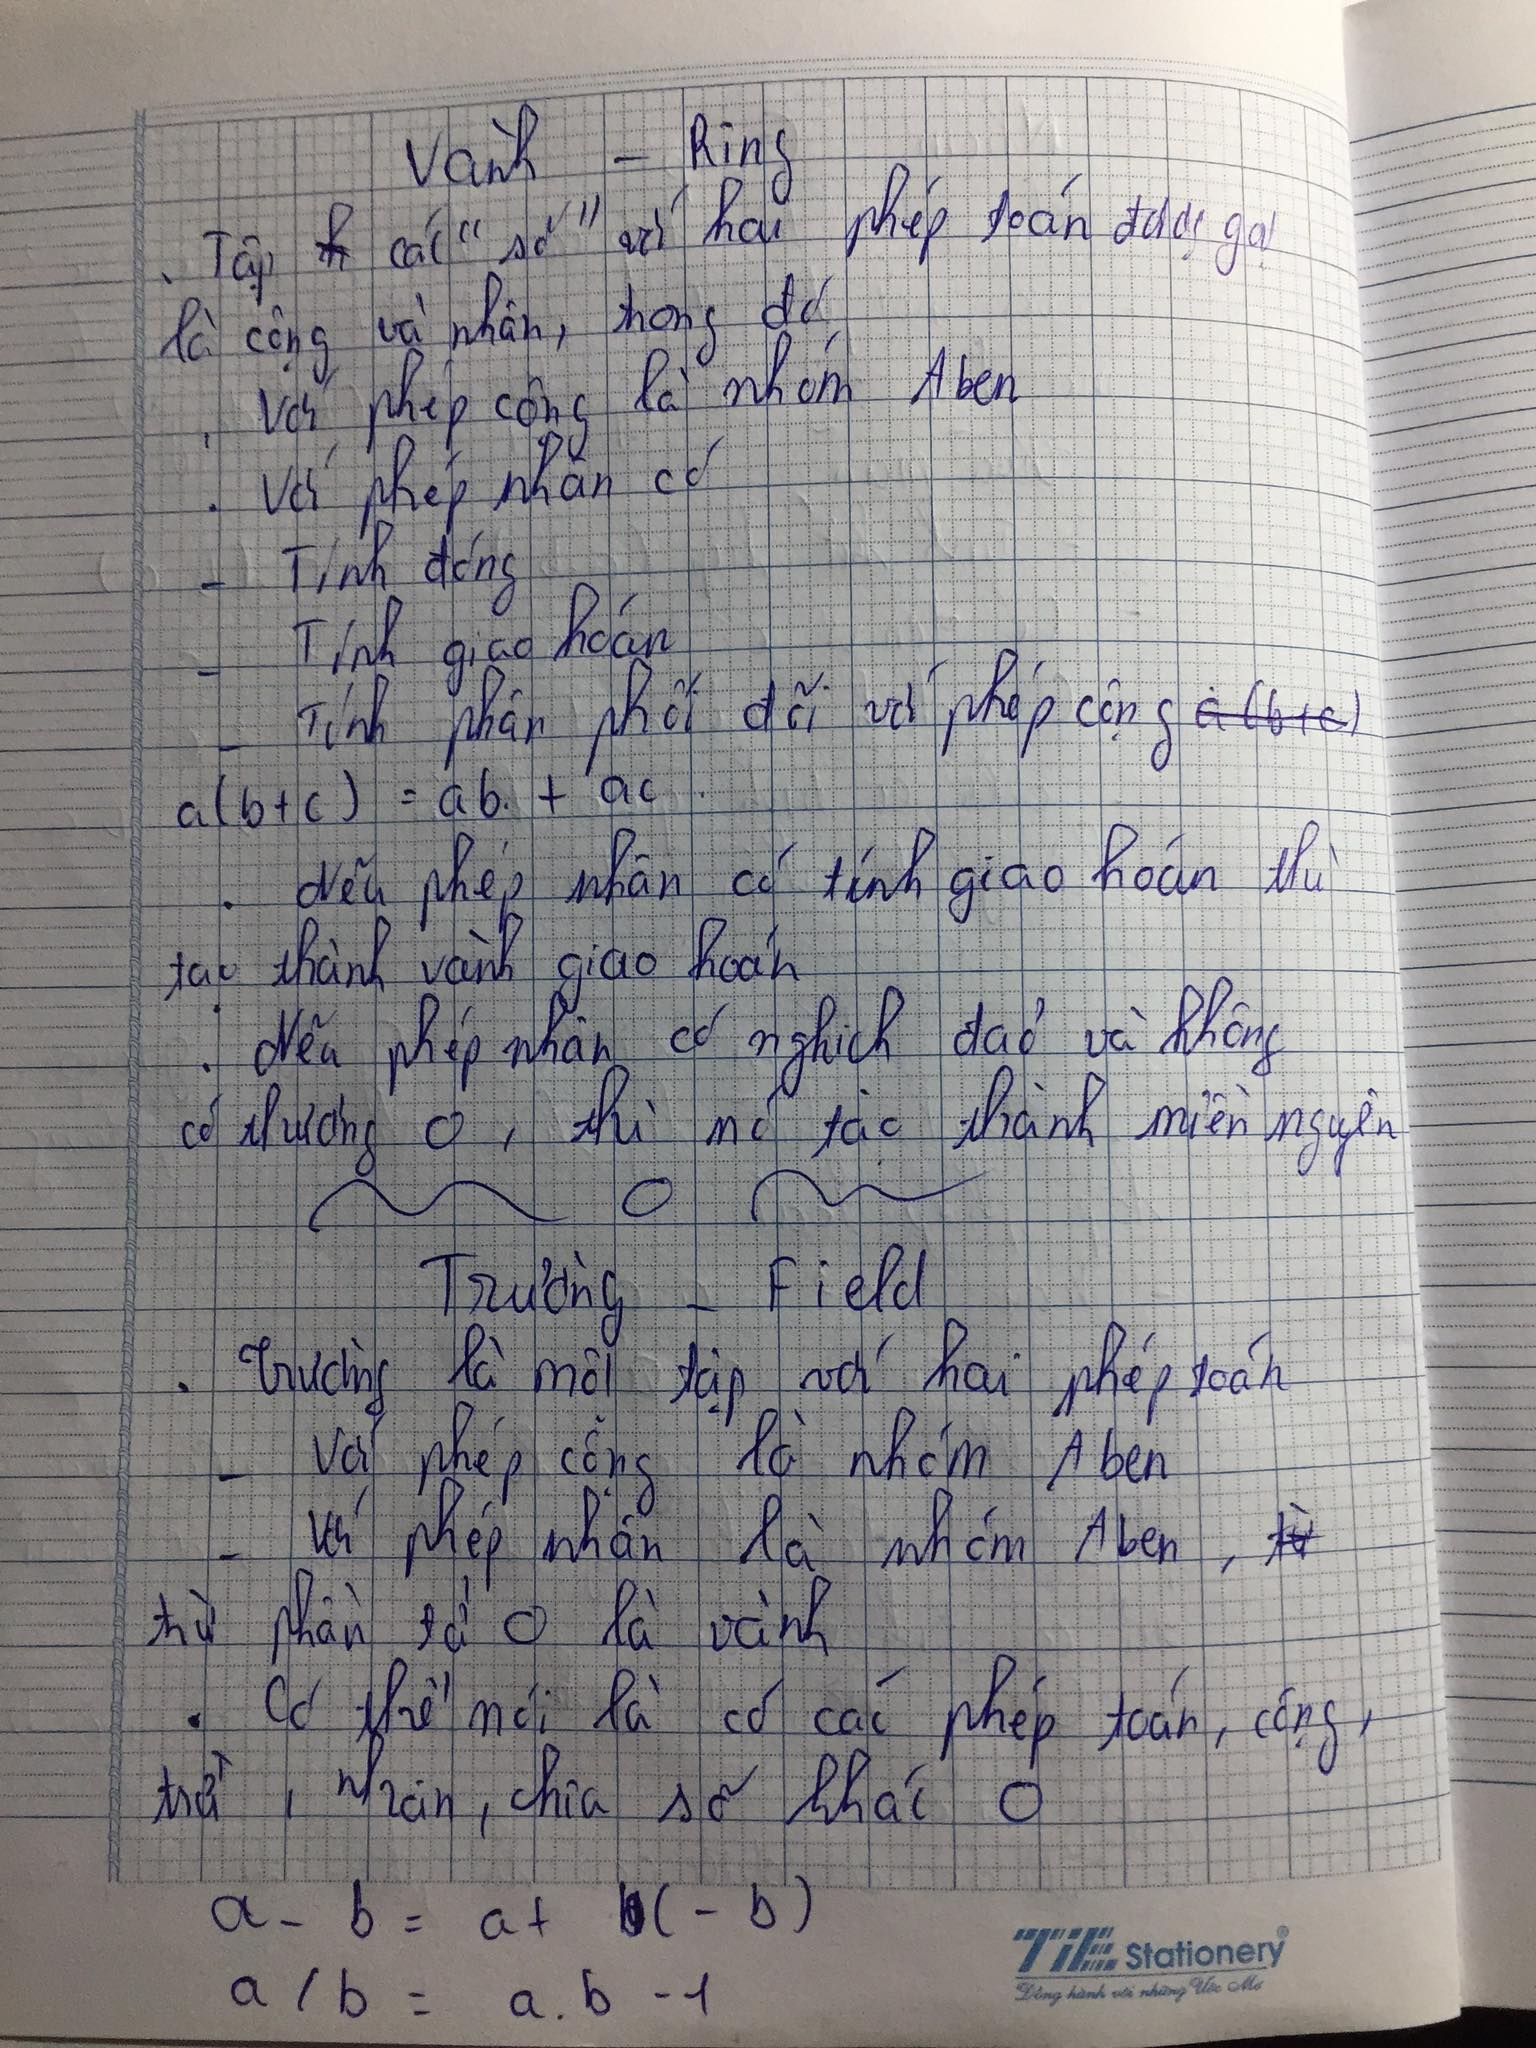 Vành - Ring
. Tập các "số" với hai phép toán được gọi
là cộng và nhân, trong đó
. Với phép cộng là nhóm Aben
. Với phép nhân có
- Tính đóng
- Tính giao hoán
- Tính phân phối đối với phép cộng a(b+c)
a(b+c) = ab + ac.
. Nếu phép nhân có tính giao hoán thì
tạo thành vành giao hoán
. Nếu phép nhân có nghịch đảo và không
có thương 0, thì nó tạo thành miền nguyên
Trường - Field
. Trường là một tập với hai phép toán
- Với phép cộng là nhóm Aben
- Với phép nhân là nhóm Aben, từ
trừ phần tử 0 là vành
. Có thể nói là có các phép toán, cộng,
trừ, nhân, chia số khác 0
a - b = a + (-b)
a / b = a.b -1
TiE Stationery®
Đồng hành với những Ước Mơ